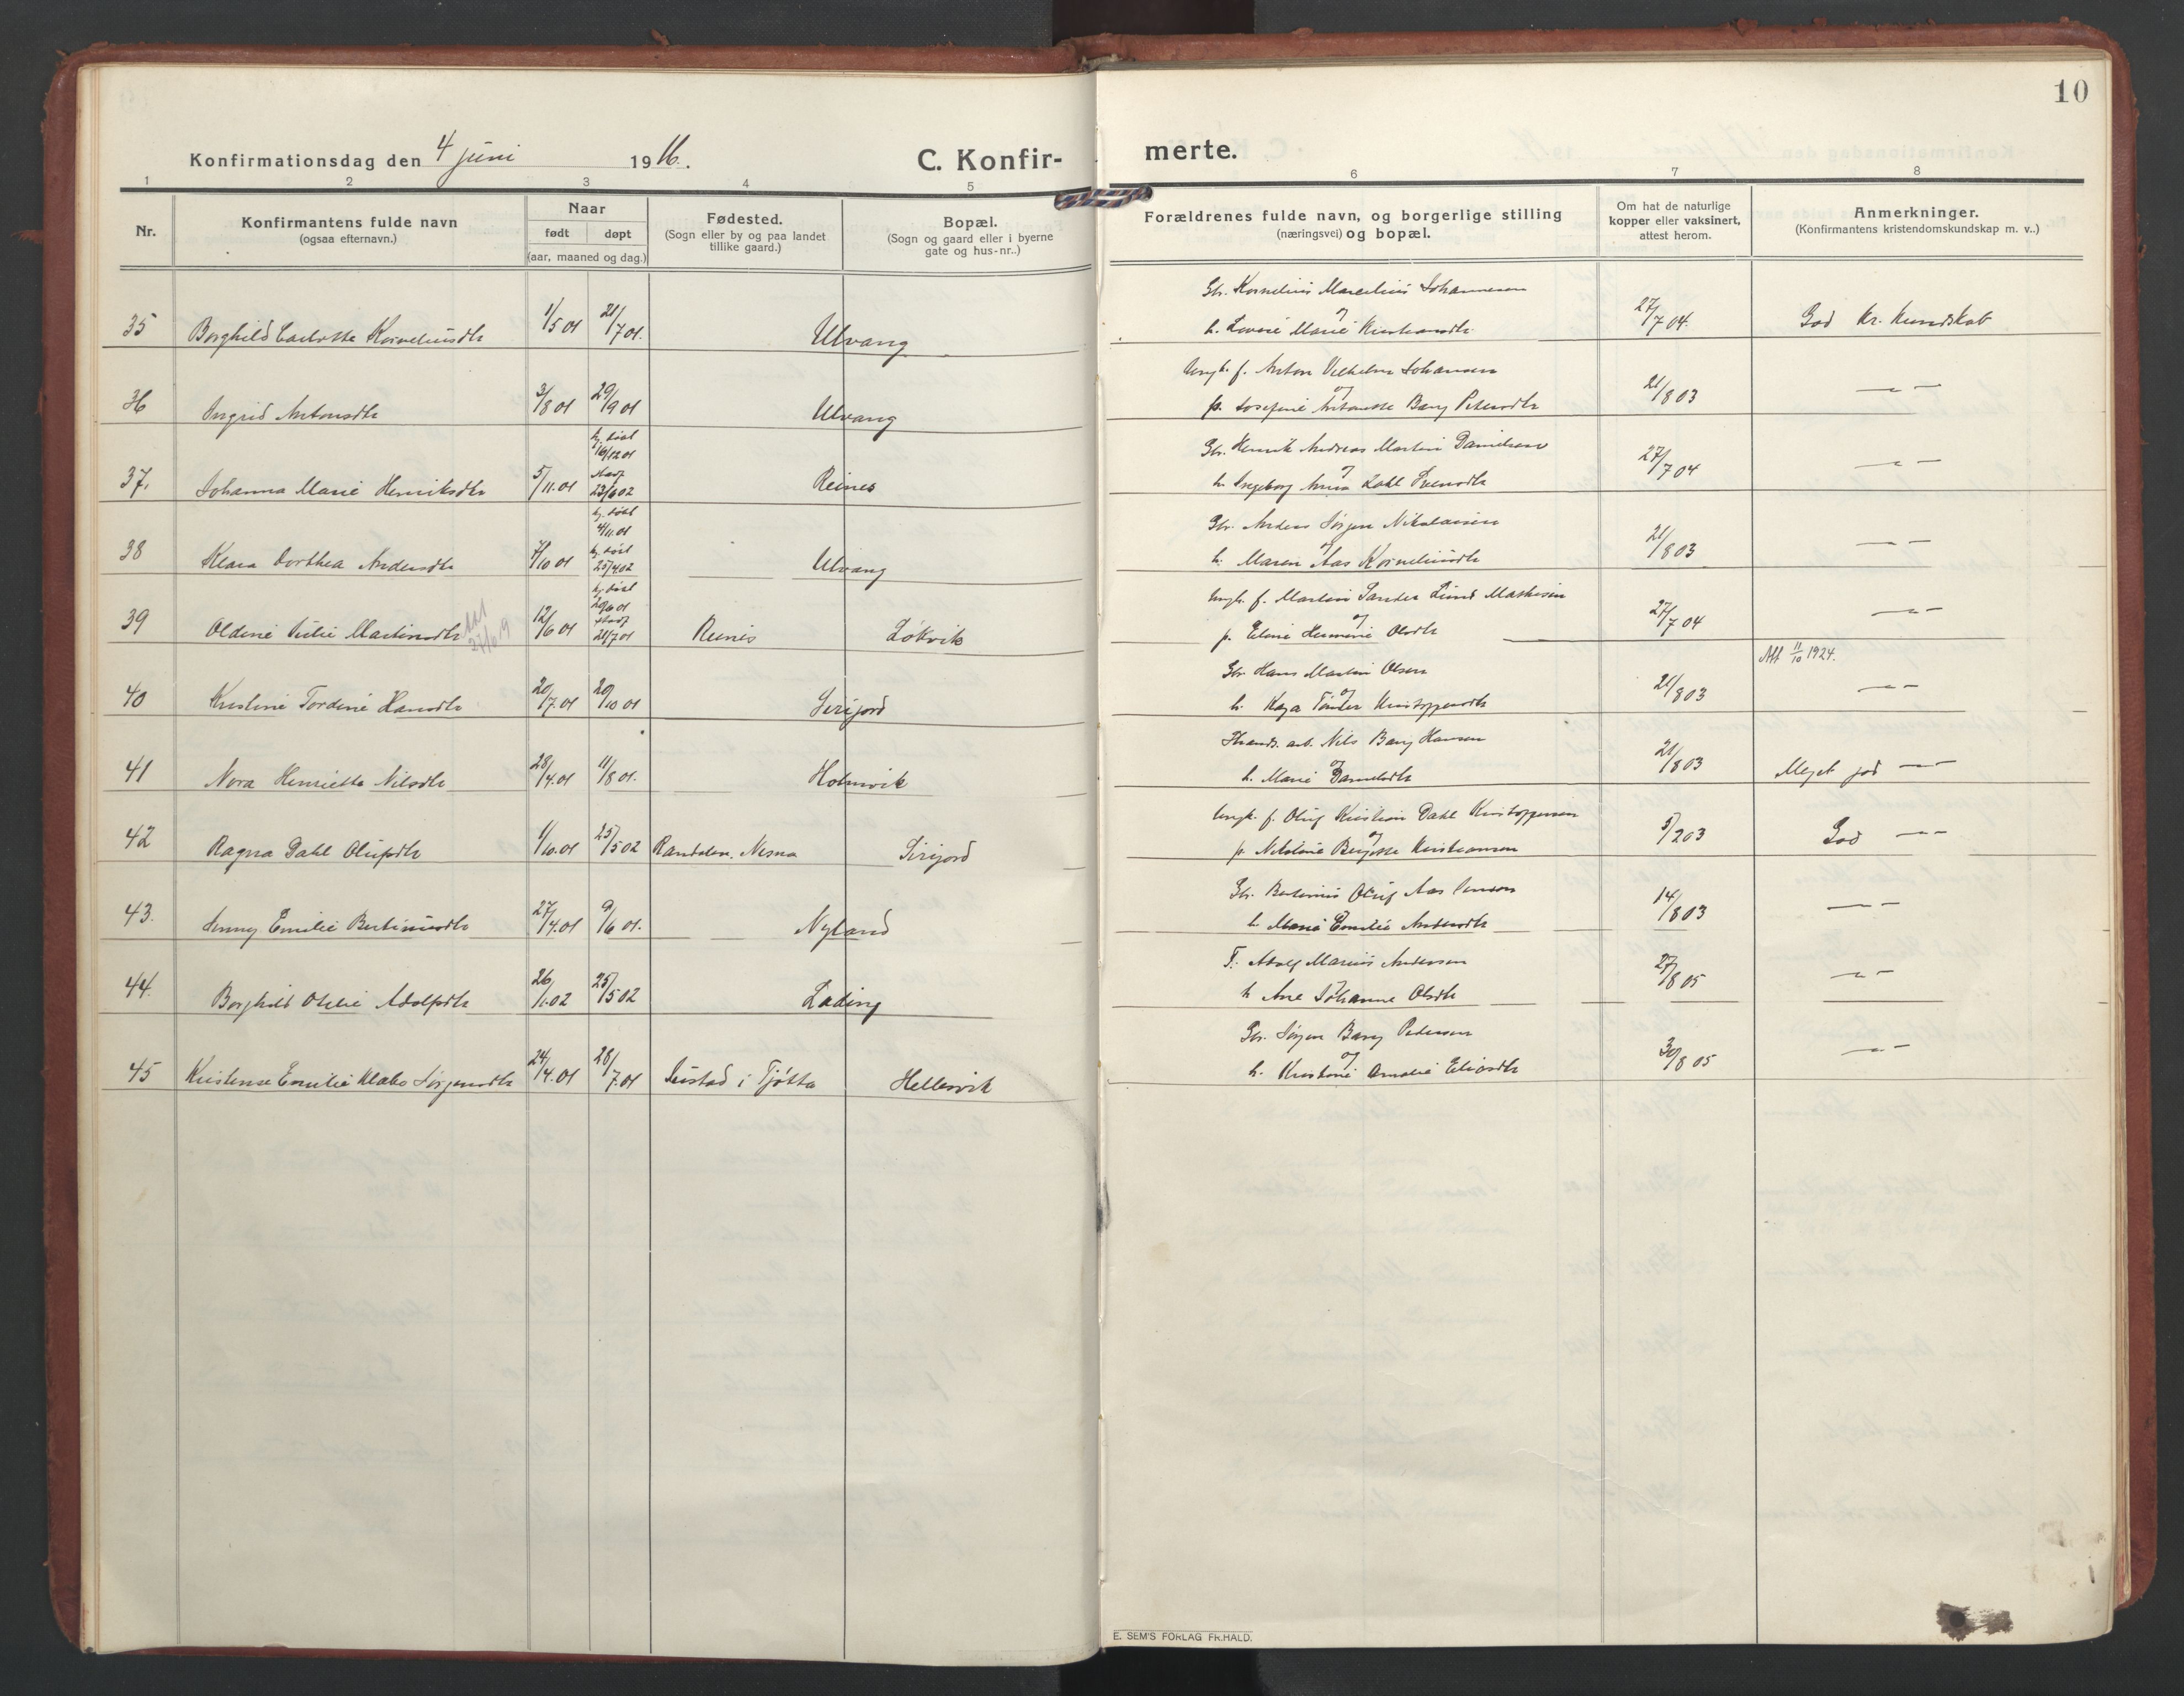 10
Konfirmationsdag den 4 juni 1916.
C. Konfir-
merte.
1 2 3 4 5 6 7 8
Nr.
Konfirmantens fulde navn
(ogsaa efternavn.)
Naar
født døpt
(aar, maaned og dag.)
Fødested.
(Sogn eller by og paa landet
tillike gaard.)
Bopæl.
(Sogn og gaard eller i byerne
gate og hus-nr..)
Forældrenes fulde navn, og borgerlige stilling
(næringsvei) og bopæl.
Om hat de naturlige
kopper eller vaksinert,
attest herom.
Anmerkninger.
(Konfirmantens kristendomskundskap m. v..)
Gbr. Kornelius Marelius Johannesen
35 Borghild Karlotte Korneliusdtr 1/5 01 21/7 01. Ulvang og 27/7 04. God Kr. Kundskab
h. Lovise Marie Kristiansdtr
Ungk. f. Anton Vilhelm Johansen
36 Ingrid Antonsdtr 3/8 01 29/9 01 Ulvang og 21/8 03 —"—
p. Josefine Antonette Bang Petersdtr
hj. døbt 16/12 01
Gbr. Henrik Andreas Martin Danielsen
37. Johanna Marie Henriksdtr 5/11.01 stadf 23/6 02 Reines og 27/7 04 —"—
h. Ingeborg Anna Dahl Svensdtr
hj. døbt 4/11.01
Gbr. Anders Jørgen Nikolaisen
38 Klara Dorthea Andersdtr 7/10 01 25/4 02 Ulvang og 21/8 03 —"—
h. Maren Aas Korneliusdtr
hj. døbt 29/6 01
Ungk. f. Martin Sander Lund Mathisen
39 Oldine Julie Martinsdtr 12/6 01 stadf 21/7 01 Reines Løkvik og 27/7 04 —"—
Att 27/6 19
p. Eline Hermine Olsdtr
Att 11/10 1924.
Gbr Hans Martin Olsen
40 Kristine Tordine Hansdtr 20/7.01 20/10 01 Sirijord og 21/8 03 —"—
h. Kaja Tønder Kristoffersdtr
Strands. arb. Nils Bang Hansen
41 Nora Henriette Nilsdtr 28/4.01 11/8 01. Holmvik og 21/8 03 Meget god —"—
h. Marie Danielsdtr
Ungk. f. Oluf Kristian Dahl Kristoffersen
42 Ragna Dahl Olufsdtr 1/10.01 25/5 02 Randalen, Nesna Sirijord og 5/2 03 God —"—
p. Nikoline Bergitte Kristiansen
Gbr. Bertinius Oluf Aas Jensen
43. Jenny Emilie Bertiniusdtr 27/4.01 9/6 01. Nyland 14/8 03 —"—
h. Marie Emilie Andersdtr
F. Adolf Marius Andersen
44. Borghild Otelie Adolfsdtr 26/1.02 25/5 02 Lading 27/8 05 —"—
h Ane Johanne Olsdtr
Gbr. Jørgen Bang Pedersen
45 Kristense Emilie Klabo Jørgensdtr 24/4.01 28/7.01 i Tjøtta Hellesvik og 30/8 05 —"—
h. Kristine Amalie Eliasdtr
E. SEM'S FORLAG FR.HALD.